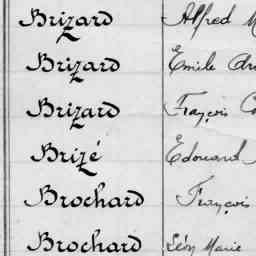 Brizard Alfred
Brizard Emile
Brizard Françcois
Brizé Edouard
Brochard François
Brochard Léon Marie